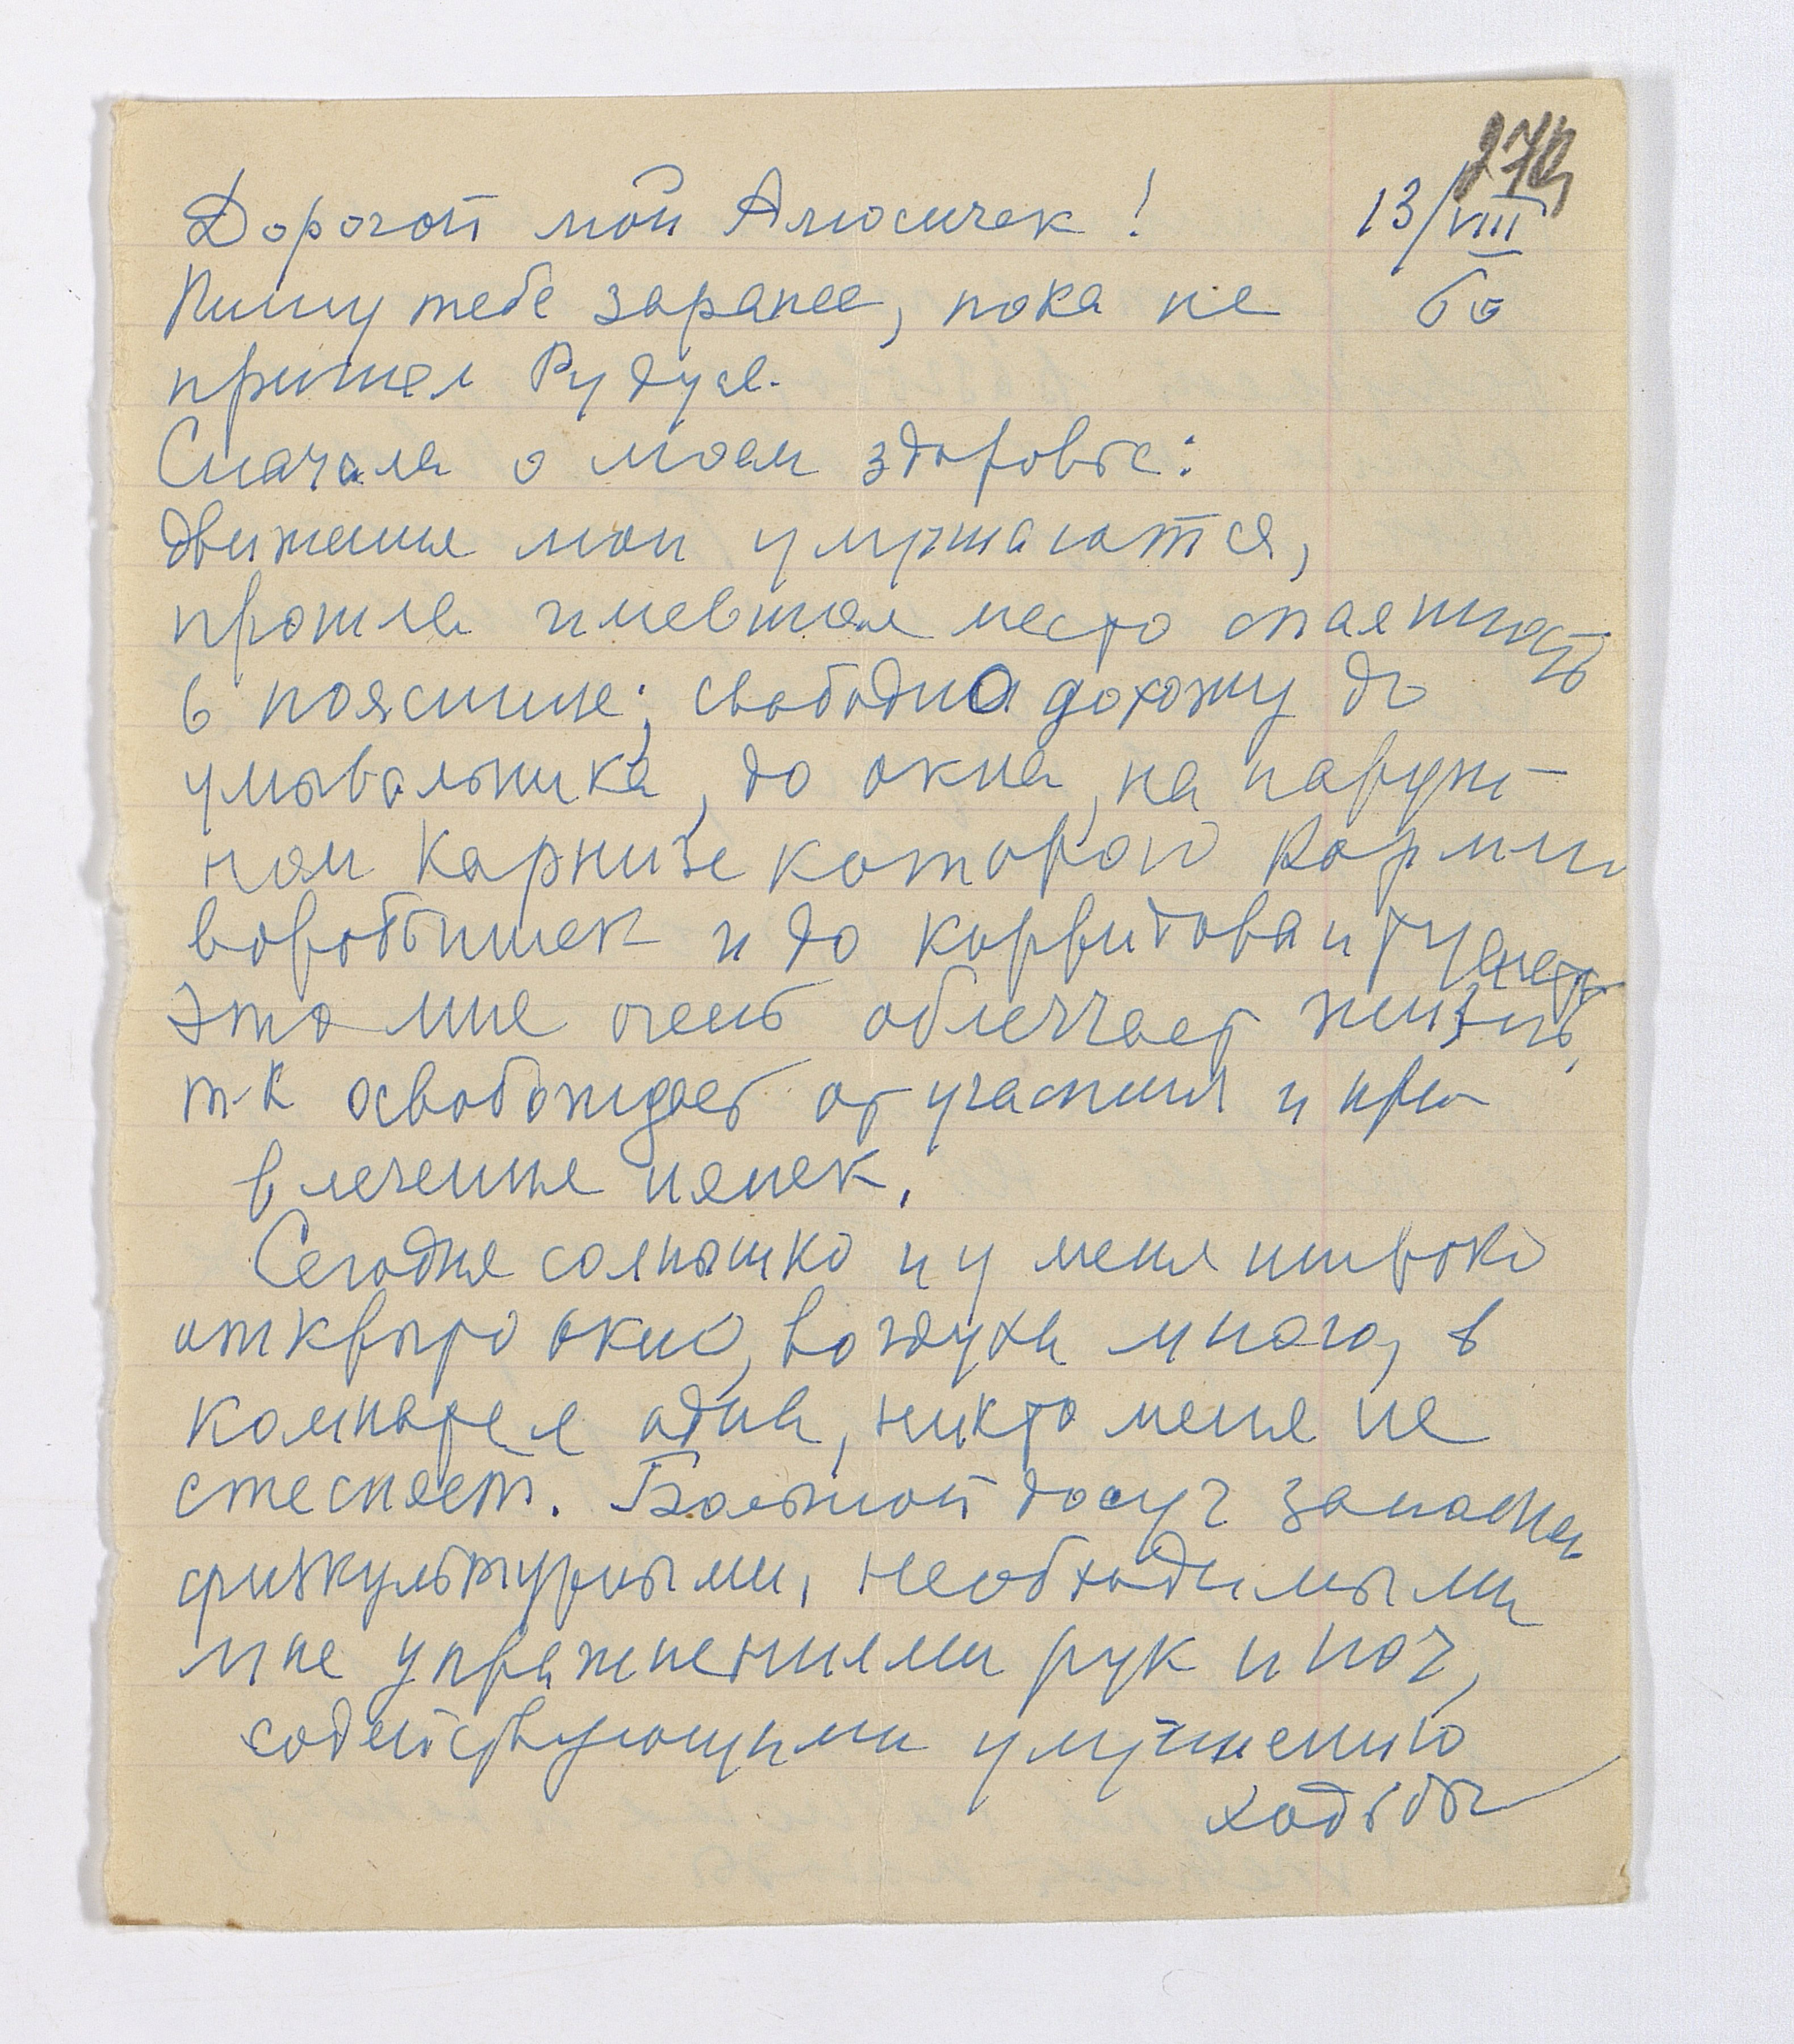 274
Дорогой мой Алюсичек! 13/VIII
Пишу тебе заранее, пока не 60
пришел Рудуся.
Сначала о моем здоровье:
движения мои улучшаются,
прошла имевшая место спаянность
в пояснице; свободно дохожу до
умывальника, до окна, на наруж-
ном карнизе которого кормлю
воробышек и до коридора и туалета
Это мне очень облегчает жизнь,
т-к освобождает от участия и при-
влечения нянек.
Сегодня солнышко и у меня широко
открыто окно, воздуха много, в
компарея одна, никто меня не
стесняет. Большой досуг заполняю
физкультурными, необходимыми
мне упражнениями рук и ног,
содействующими улучшению
ходьбы